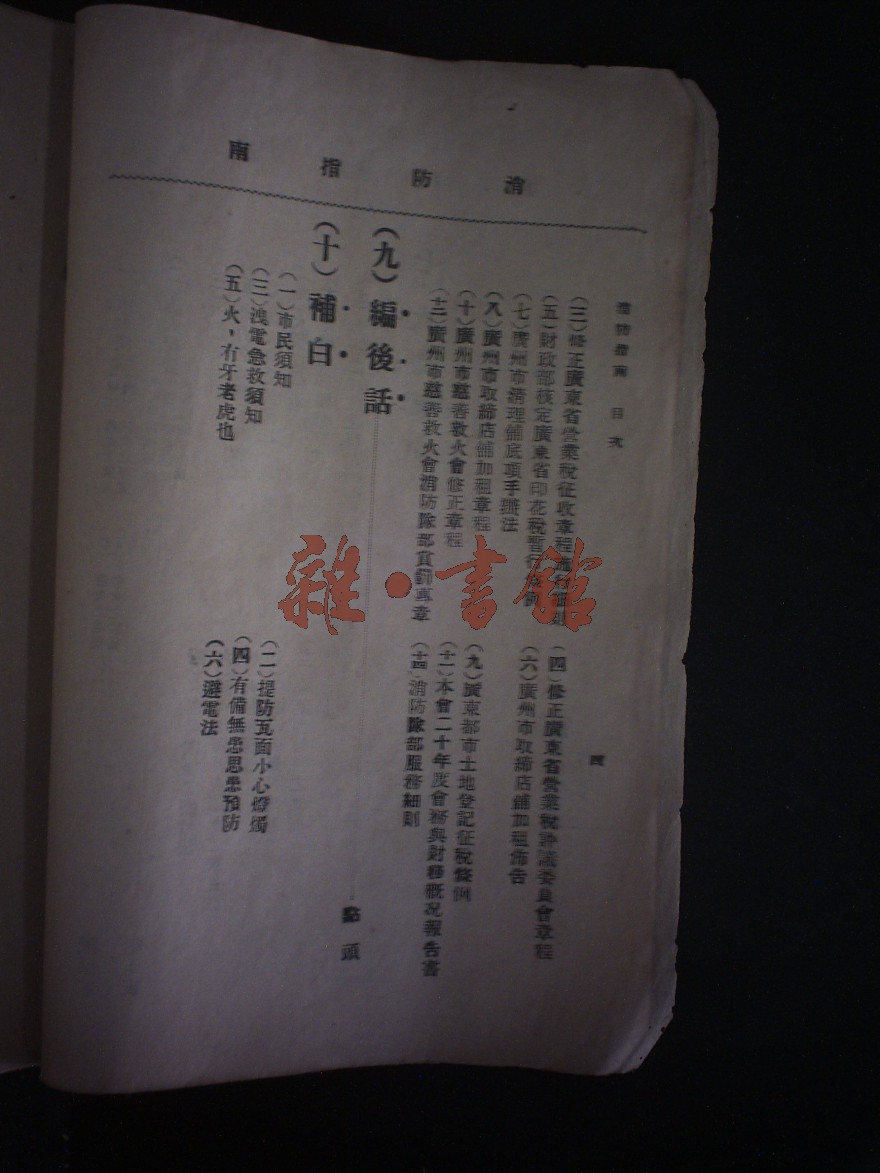 消防指南
消防指南 目次
四
(三)修正廣東省營業稅征收章程施行細則
(四)修正廣東省營業稅評議委員會章程
(五)財政部核定廣東省印花稅暫行條例
(六)廣州市取締店鋪加租佈告
(七)廣州市清理鋪底頂手辦法
(八)廣州市取締店鋪加租章程
(九)廣東都市土地登記征稅條例
(十)廣州市慈善救火會修正章程
(十一)本會二十年度會務與財務概況報告書
(十三)廣州市慈善救火會消防隊部賞罰專章
(十四)消防隊部服務細則
(九)編後話
點頭
(十)補白
(一)市民須知
(二)提防瓦面小心燈燭
(三)洩電急救須知
(四)有備無患思患預防
(五)火,冇牙老虎也
(六)避電法
雜·書館